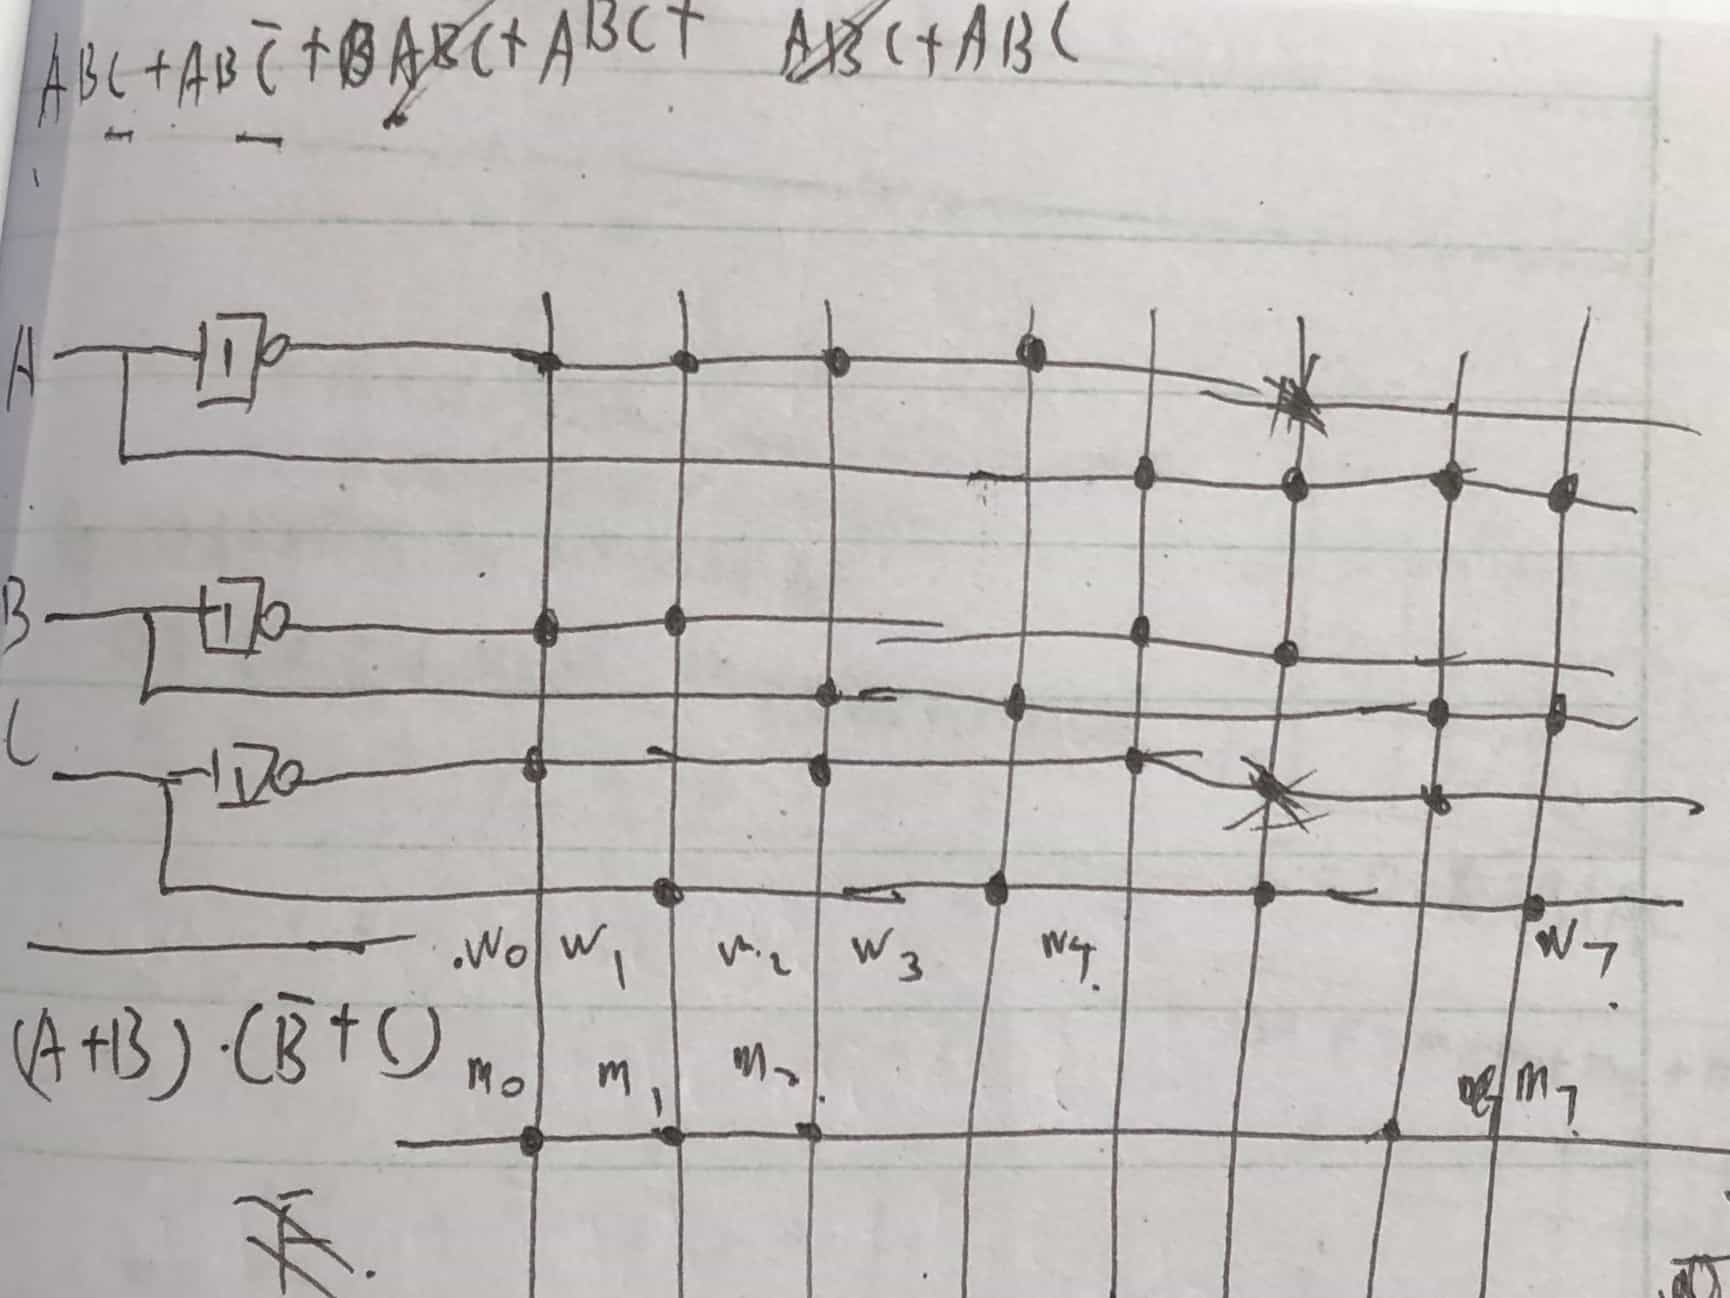 ABC + ABC̅ + ABC + ABC + ABC + ABC
A 1
B 1
C 1
W₀ W₁ W₂ W₃ W₄ W₇
(A+B)·(B̅+C)
m₀ m₁ m₂ m₇
A̅